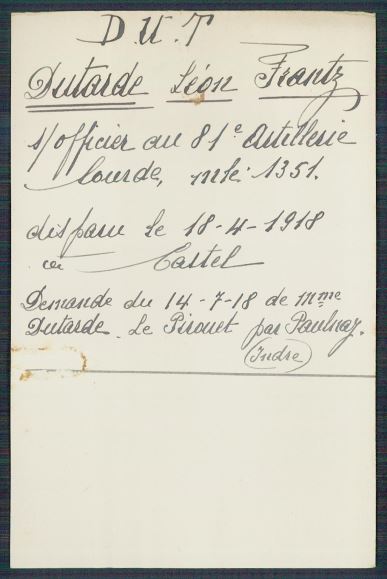 D.U.T
Dutarde Léon Frantz
s/officier au 81e Artillerie
lourde, mle 1351.
disparu le 18-4-1918
à Castel
Demande du 14-7-18 de Mme
Dutarde. Le Pirouet par Paulnay.
(Indre)